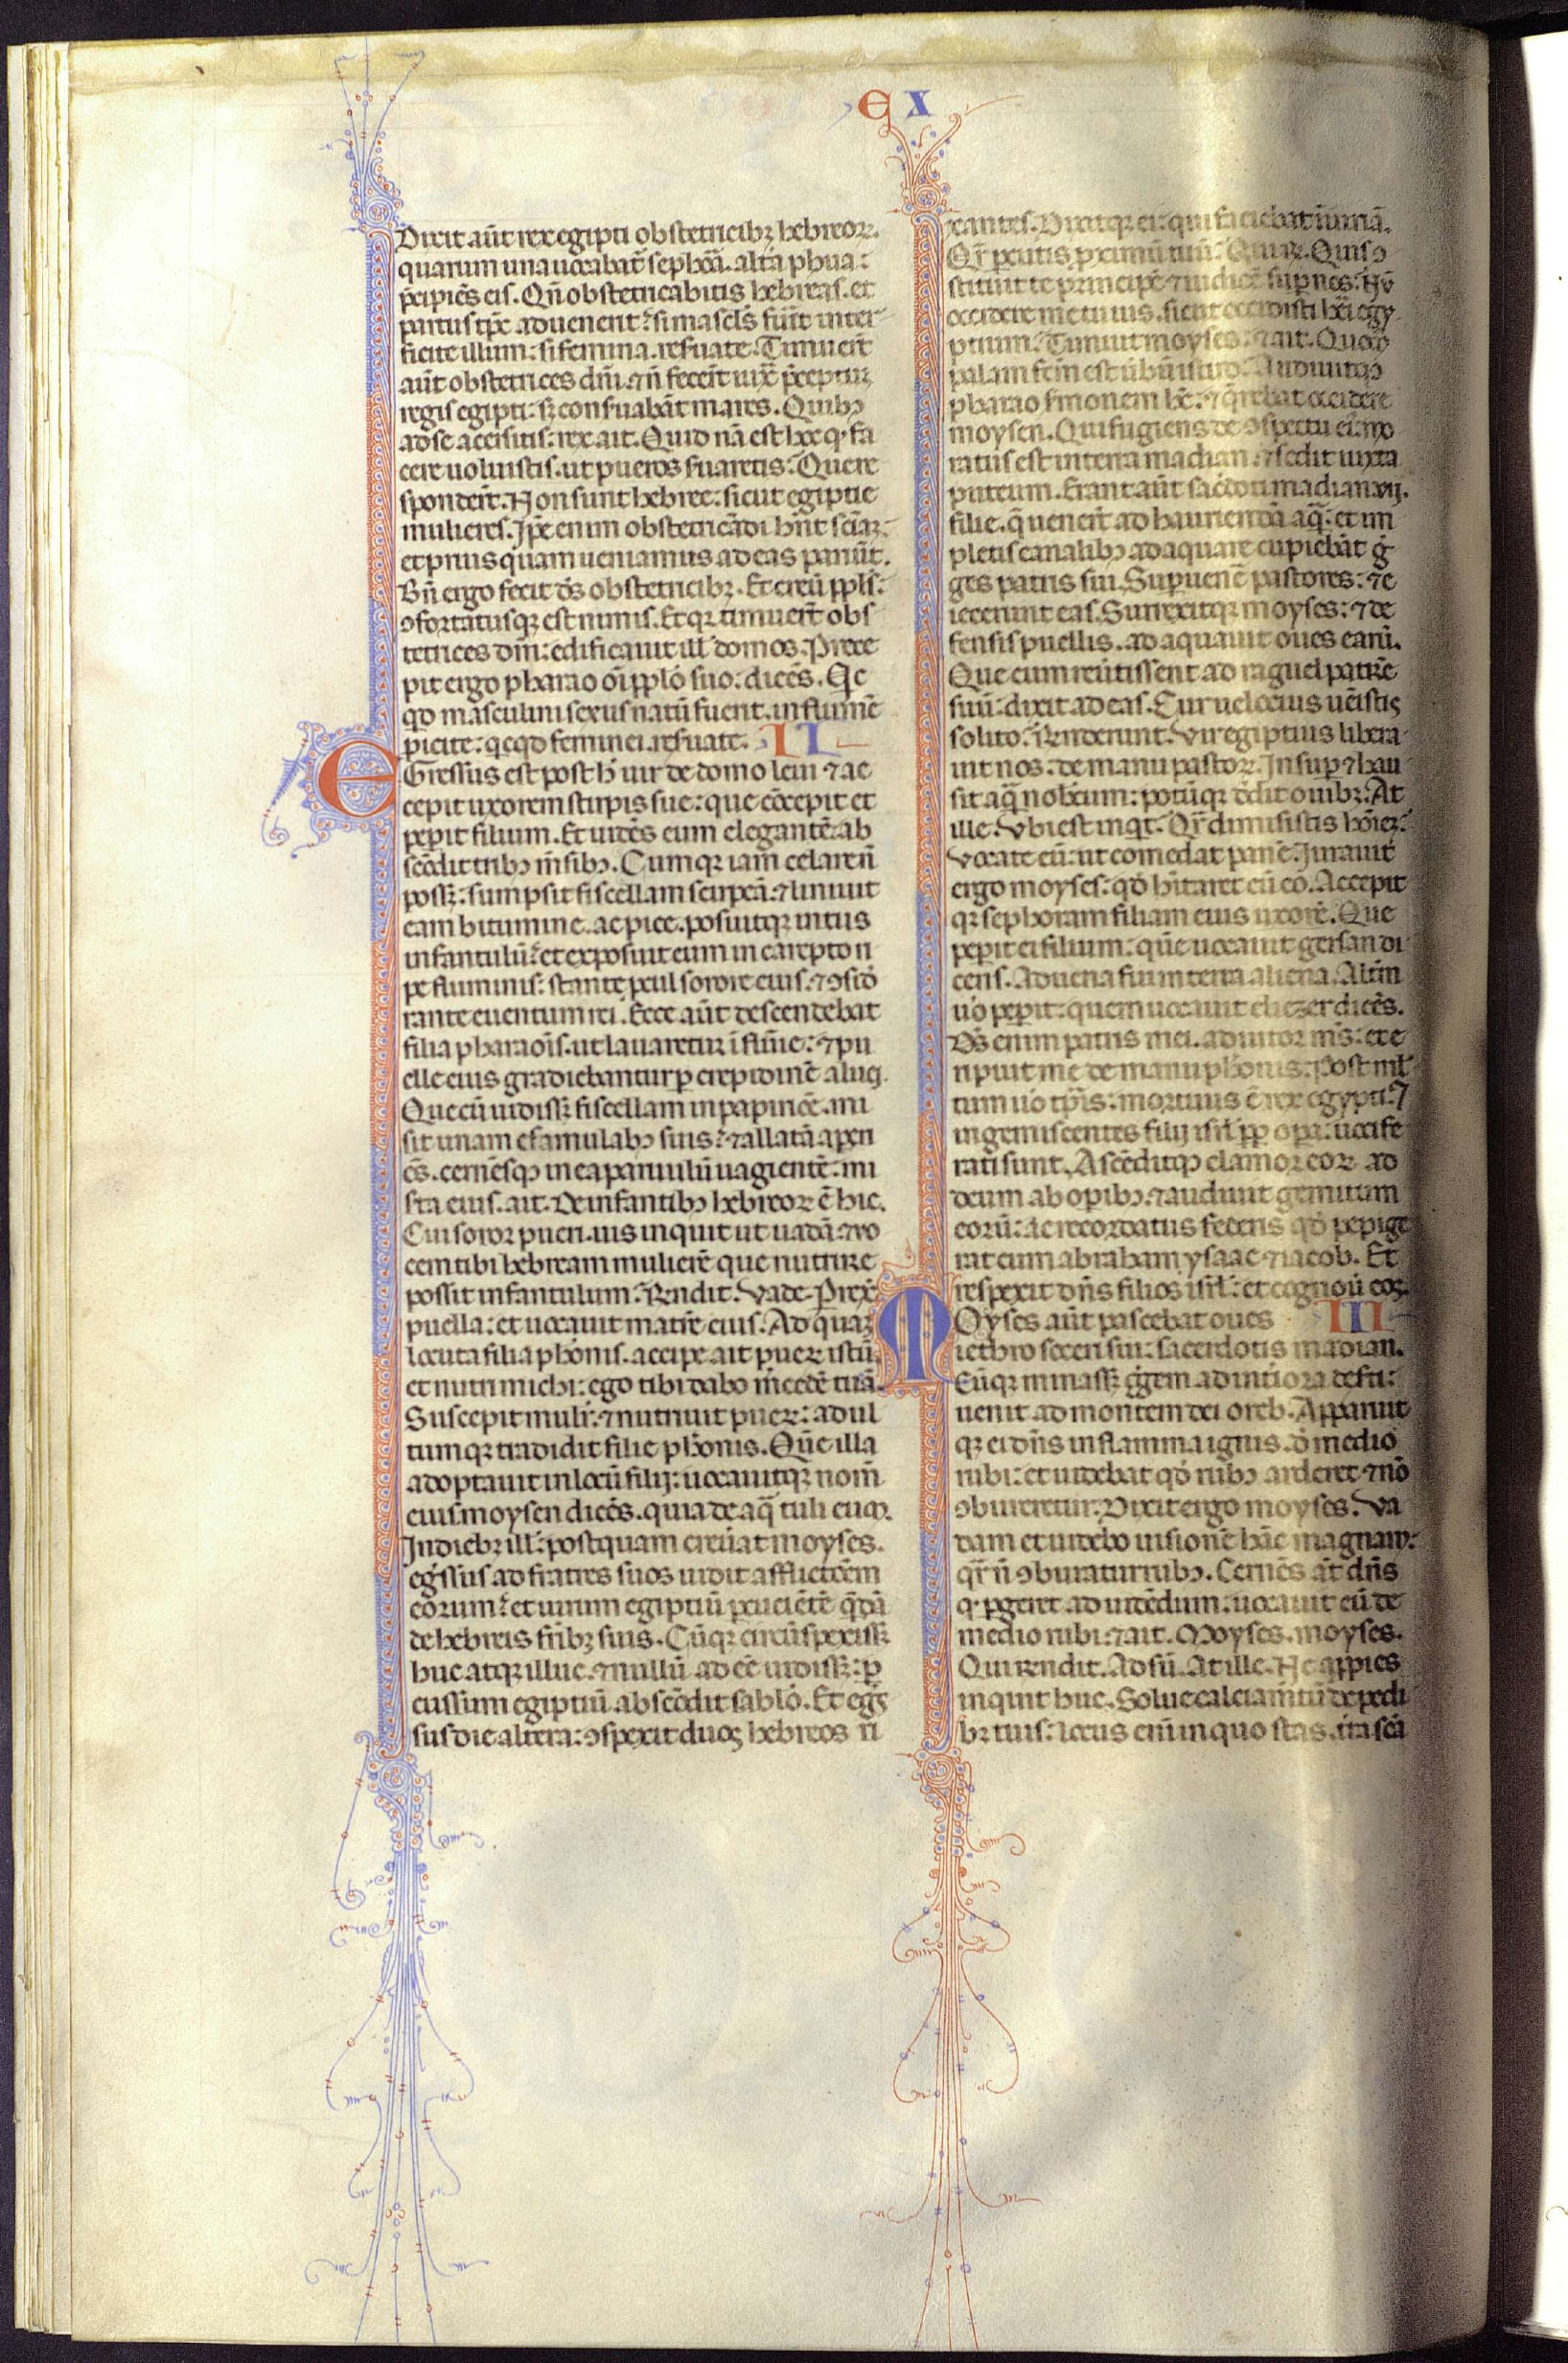 EX
Dixit aūt rex egipti obstetricibꝫ hebreoꝝ.
quarum una uocabat᷒ sephora. altera phua:
p̄cipiēs eis. Qn̄ obstetricabitis hebreas. et
partus tp̄s aduenerit: si mascl̓s fuīt inter
ficite illum: si femina. reẜuate. Timuerūt
aūt obstetrices dm̄. ⁊ n̄ fecerūt iuxͣ p̄ceptuꝫ
regis egipti: sꝫ conẜuabāt mares. Quibꝰ
ad se accisitis: rex ait. Quid nā est hoc qͦ fa
cere uoluistis. ut pueros ẜuaretis. Que re
sponderūt. Non sunt hebree: sicut egiptie
mulieres. Ip̄e enim obstetricādi hn̄t sciaꝫ:
et prius quam ueniamus ad eas pariūt.
Bn̄ ergo fecit ds̄ obstetricibꝫ. Et creū ppl̓s:
ꝯfortatusqꝫ est nimis. Et qꝛ timuerūt obs
tetrices dm̄: edificauit ill̓ domos. Prece
pit ergo pharao oī pplo suo: dicēs. Qc
qd masculini sexus natū fuerit. in flumē
ꝓicite: qcqd feminei. reẜuate. II
EGressus est post h̄ uir de domo leui ⁊ ac
cepit uxorem stirpis sue: que cōcepit et
peperit filium. Et uidēs eum elegantē: ab
scōdit tribꝰ mēsibꝰ. Cumqꝫ iam celare n̄
possꝫ: sumpsit fiscellam scirpeā: ⁊ liniuit
eam bitumine. ac pice. posuitqꝫ intus
infantulū: et exposuit eum in carepto ri
pe fluminis: stante ꝓcul sorore eius. ⁊ ꝯsid̄
rante euentum rei. Ecce aūt descendebat
filia pharaoīs. ut lauaretur ī flūie: ⁊ pu
elle eius gradiebantur ꝑ crepidinē aluei.
Que cū uidissꝫ fiscellam in papirioē. mi
sit unam e famulabꝰ suis: ⁊ allatā aperi
ēs. cernēsqꝫ in ea paruulū uagientē: mi
sta eius. ait. De infantibꝰ hebreoꝝ ē hic.
Cui soror pueri. uis inquit ut uadā: ⁊ uo
cem tibi hebream mulierē que nutrire
possit infantulum. R̄ndit. Vade. Prexͭ
puella: et uocauit matrē eius. Ad quaꝫ
locuta filia phōnis. accipe ait pueꝝ istū.
et nutri michi: ego tibi dabo mercedē tuā.
Suscepit muli᷒: ⁊ nutriuit pueꝝ: adul
tumqꝫ tradidit filie phōnis. Quē illa
adoptauit in locū filij: uocauitqꝫ nom̄
eius moysen dicēs. quia de aq̄ tuli eum.
In diebꝫ ill̓: postquam creūat moyses.
egr̄ssus ad fratres suos uidit afflictōem
eorum: et uirum egiptiū ꝑcucientē q̄dā
de hebreis fr̄ibꝫ suis. Cūqꝫ circūspexissꝫ
huc atqꝫ illuc. ⁊ nullū adeē uidissꝫ: ꝑ
cussum egiptiū. abscōdit sablo. Et egr̄s
sus die altera: ꝯspexit duos hebreos ri
xantes. Dixitqꝫ ei: qui faciebat iniuriā.
Qr̄ ꝑcutis ꝓximū tuū. Qui ꝯ
stituit te principē ⁊ iudicē suꝑ nos.
occidere me tu uis. sicut occidisti heri egy
ptium. Timuit moyses: ⁊ ait. Quomō
palam fcm̄ est ūbū istud. Audiuitqꝫ
pharao ẜmonem hc̄: ⁊ q̄rebat occidere
moysen. Qui fugiens de ꝯspectu ei: mo
ratus est in terra madian. ⁊ sedit iuxta
puteum. Erant aūt sac̄doti madian. vij.
filie. q̄ uenerūt ad hauriendā aq̄: et im
pletis canalibꝰ adaquare cupiebāt g̊
ges patris sui. Suꝑuenere pastores: ⁊ e
iecerunt eas. Surrexitqꝫ moyses: ⁊ de
fensis puellis. adaquauit oues earū.
Que cum reūtissent ad raguel patrē
suū: dixit ad eas. Cur uelocius uēistis
solito. R̄nderunt. Vir egiptius libera
uit nos: de manu pastoꝝ. Insuꝑ ⁊ hau
sit aq̄ nobcum: potūqꝫ dedit ouibꝫ. At
ille. Vbi est inqt. Qr̄ dimisistis hoīez.
Vocate eū: ut comedat panē. Iurauit
ergo moyses: qd̄ hītaret cū eo. Accepit
qꝫ sephoram filiam eius uxorē. Que
peperit ei filium: quē uocauit gersan di
cens. Aduena fui in terra aliena. Altm̄
uo peperit: quem uocauit eliezer dicēs.
Ds̄ enim patris mei. adiutor ms̄: et e
ripuit me de manu phōnis. Post ml̓
tum uo tp̄is: mortuus ē rex egypti. ⁊
ingemiscentes filij isrl̓ ꝓp oꝑa: uocife
rati sunt. Ascēditqꝫ clamor eoꝝ ad
deum ab oꝑibꝰ. ⁊ audiuit gemitum
eorū: ac recordatus federis qd̄ pepige
rat cum abraham ysaac ⁊ iacob. Et
respexit dn̄s filios isrl̓: et cognouͭ eos.
MOyses aūt pascebat oues III
iethro soceri sui: sacerdotis madian.
Cūqꝫ minassꝫ gr̄gem ad intiora deẜti:
uenit ad montem dei oreb. Apparuit
qꝫ ei dn̄s in flamma ignis. d̄ medio
rubi: et uidebat qd̄ rubꝰ arderet ⁊ nō
ꝯbureretur. Dixit ergo moyses. Va
dam et uidebo uisionē hāc magnam:
qr̄ n̄ ꝯburatur rubꝰ. Cernēs at̄ dn̄s
qͦ ꝑgeret ad uidēdum: uocauit eū de
medio rubi. ⁊ ait. Moyses. moyses.
Qui r̄ndit. Adsū. At ille. Ne appies
inquit huc. Solue calciam̄tū de pedi
bꝫ tuis: locus enī in quo stas. t̄ra scā